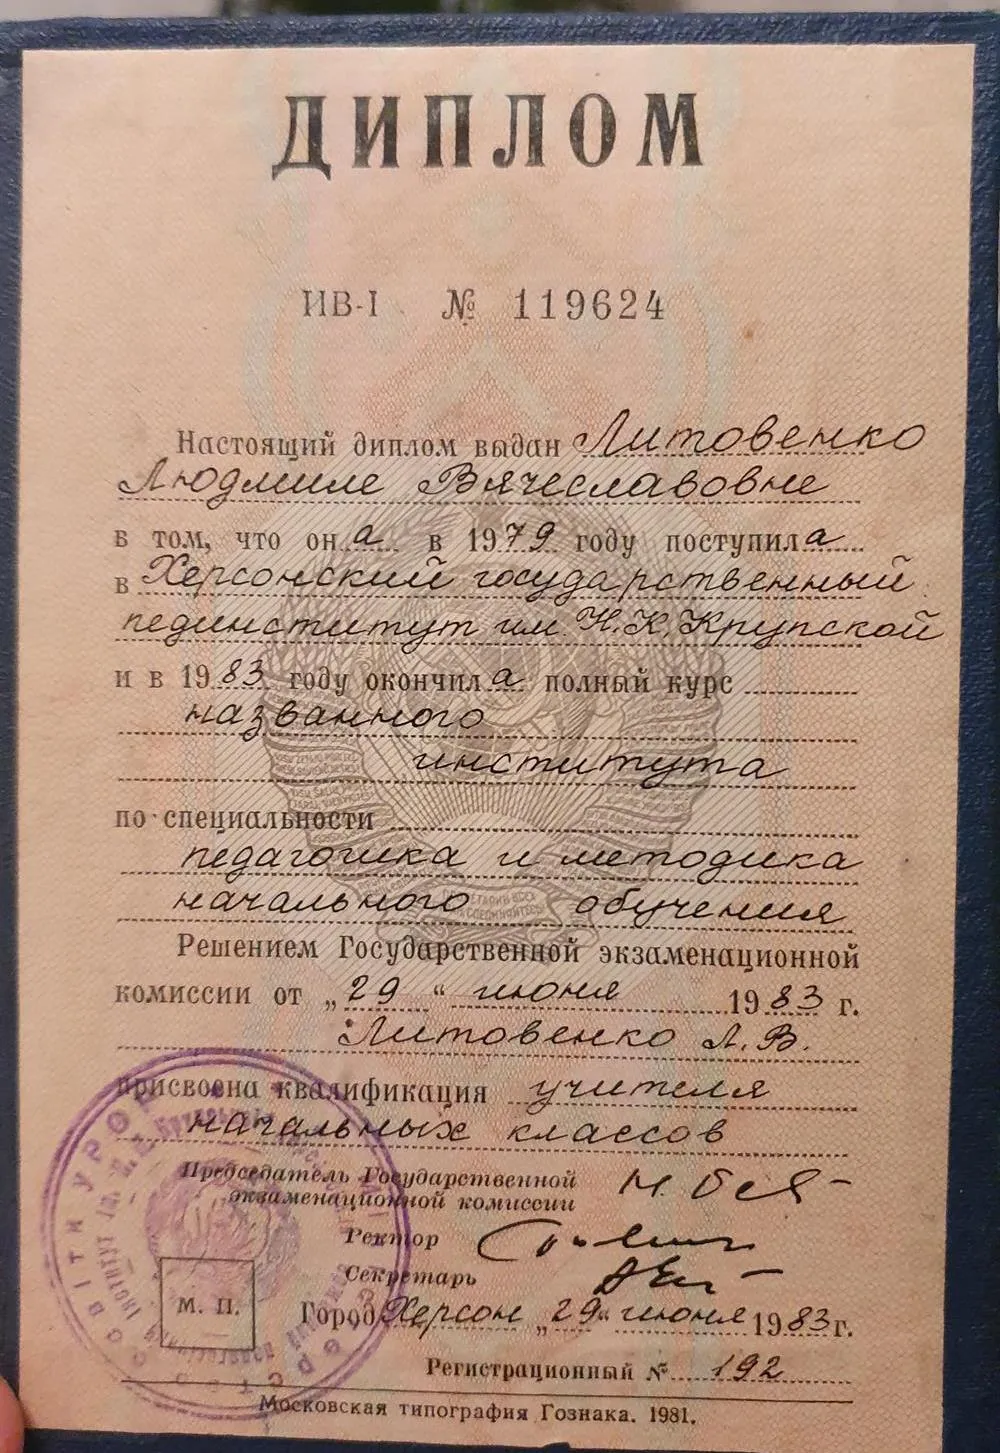 ДИПЛОМ
ИВ-I № 119624
Настоящий диплом выдан Литовенко
Людмиле Вячеславовне
в том, что он а в 1979 году поступил а
в Херсонский государственный
пединститут им. Н.К.Крупской
и в 1983 году окончил а полный курс
названного
института
по специальности
педагогика и методика
начального обучения
Решением Государственной экзаменационной
комиссии от „29“ июня 1983 г.
Литовенко Л.В.
присвоена квалификация учителя
начальных классов
Председатель Государственной
экзаменационной комиссии
Ректор
Секретарь
М. П.
Город Херсон „29“ июня 1983 г.
Регистрационный № 192
Московская типография Гознака. 1981.